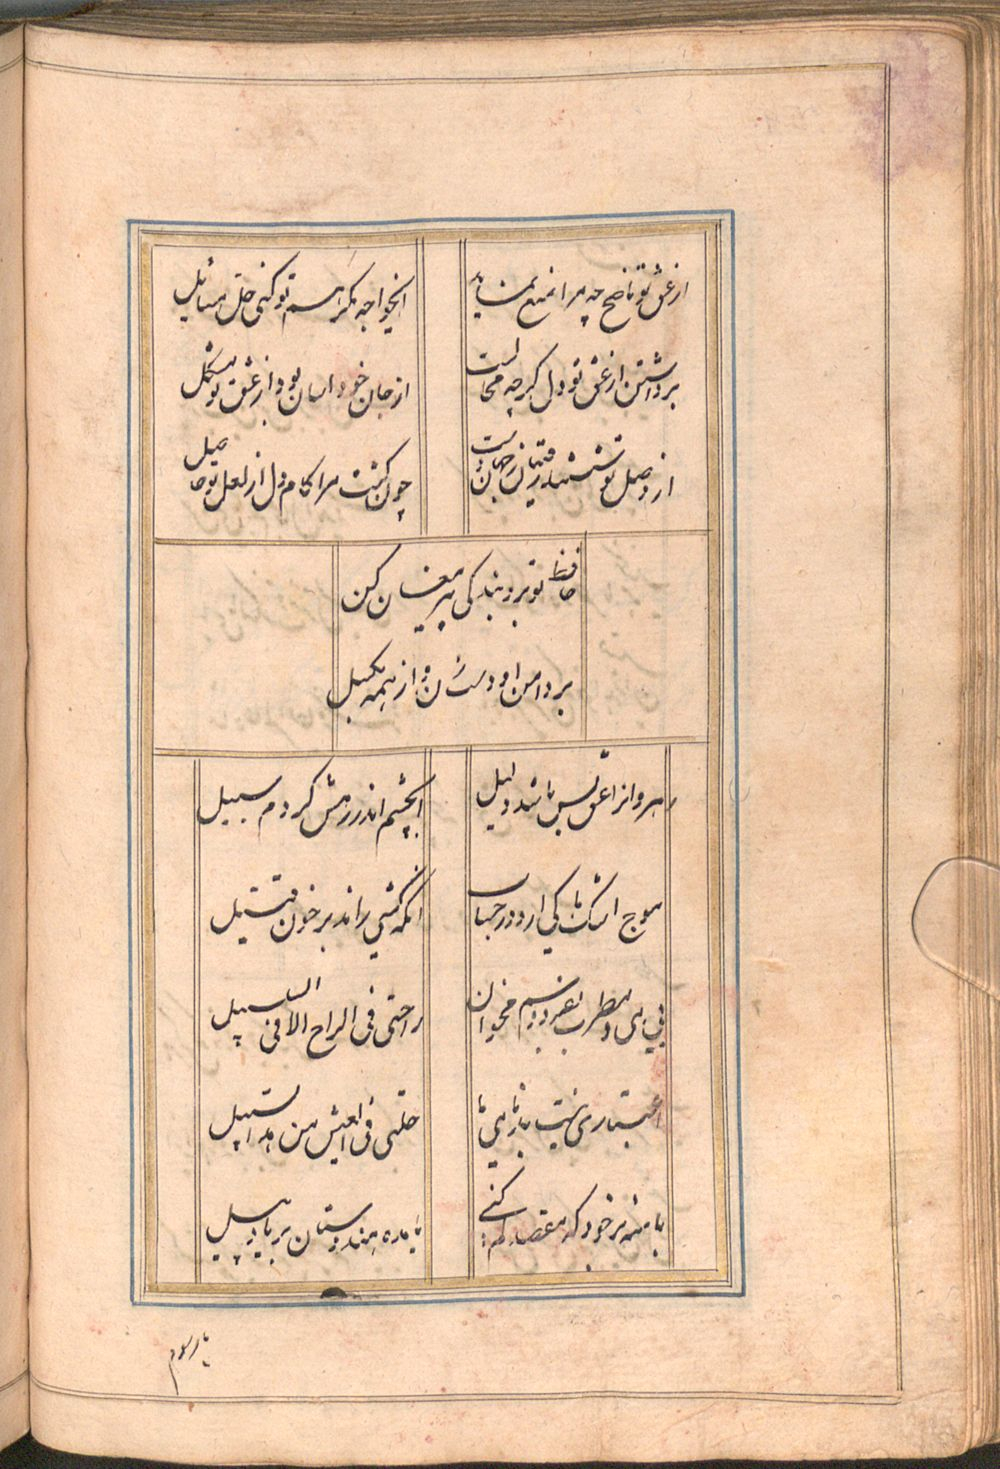 از عشق تو ناصح چه مرا منع نماید
ایخواجه مگر هم تو کنی حل مسائل
برداشتن از عشق تو دل گرچه محالست
از جان خود اسان بود از عشق تو مشکل
از وصل تو شستند رقیبان ز جهان دست
چون گشت مرا کام دل از لعل تو حاصل
حافظ تو برو بندگی پیر مغان کن
بر دامن او دست زن و از همه بگسل
رهروانرا عشق بس باشد دلیل
ابچشم اندر رهش کردم سبیل
موج اشک ما کی ارد در حساب
انکه کشتی راند بر خون قتیل
بی می و مطرب بفردوسم مخوان
راحتی فی الراح لا فی السلسبیل
اختیاری نیست بدنامی ما
ضلنی فی العشق من یهدی السبیل
یا منه بر خود که مقصد گم کنی
یا مده هندوستان بر یاد پیل
یا رسوم